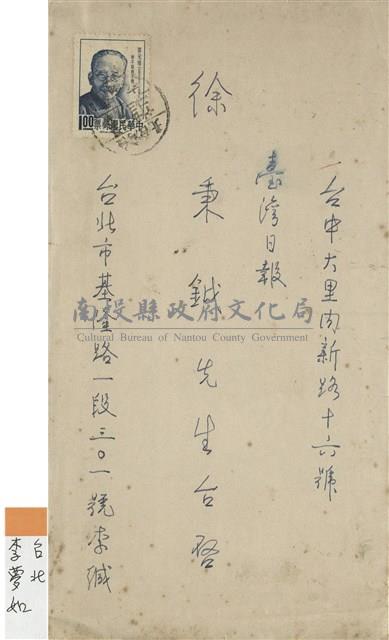 台中大里內新路十六號
臺灣日報
徐秉鉞先生台啓
台北市基隆路一段三〇一號李緘
1.00 票郵國民華中
南投縣政府文化局
Cultural Bureau of Nantou County Government
台北
李夢如